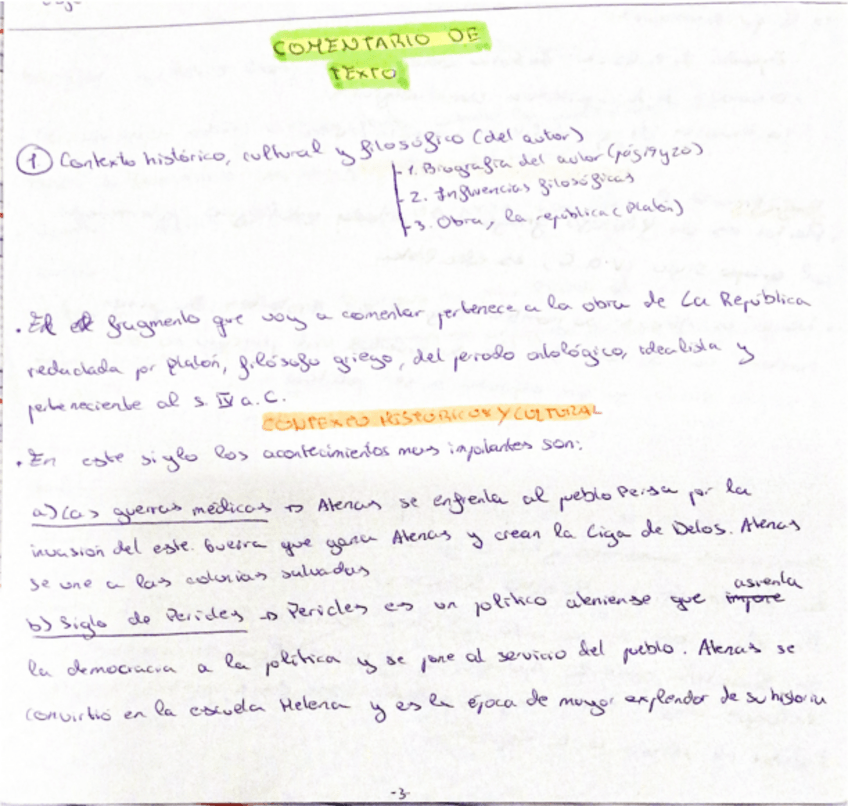 COMENTARIO DE
TEXTO
① Contexto histórico, cultural y filosófico (del autor)
1. Biografía del autor (pág 19 y 20)
2. Influencias filosóficas
3. Obra, la república (Platón)
. El fragmento que voy a comentar pertenece a la obra de La República
redactada por Platón, filósofo griego, del periodo ontológico, idealista y
perteneciente al s. IV a. C.
CONTEXTO HISTORICO Y CULTURAL
. En este siglo los acontecimientos mas importantes son:
a) Las guerras médicas → Atenas se enfrenta al pueblo Persa por la
invasión del este. Guerra que gana Atenas y crean la Liga de Delos. Atenas
se une a las colonias salvadas
b) Siglo de Pericles → Pericles es un político ateniense que impone asienta
la democracia a la política y se pone al servicio del pueblo. Atenas se
convirtió en la escuela Helena y es la época de mayor explendor de su historia
-3-